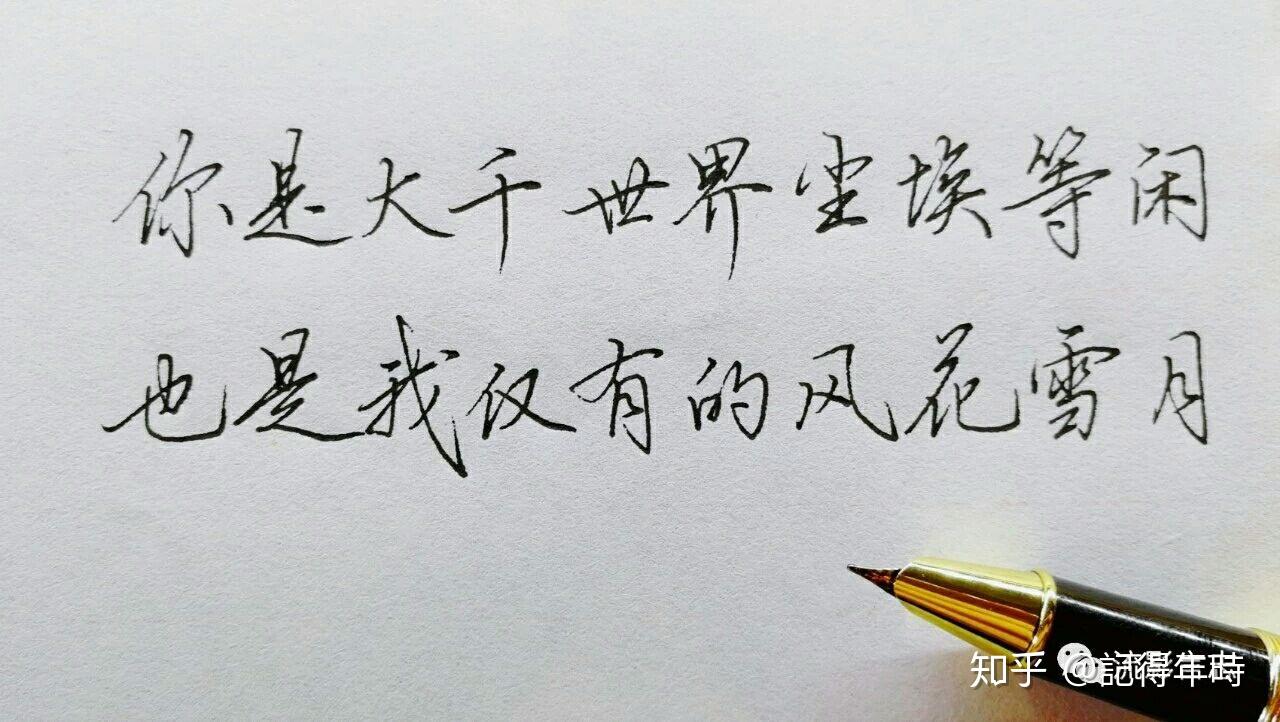 你是大千世界尘埃等闲
也是我仅有的风花雪月
知乎 @記得年時